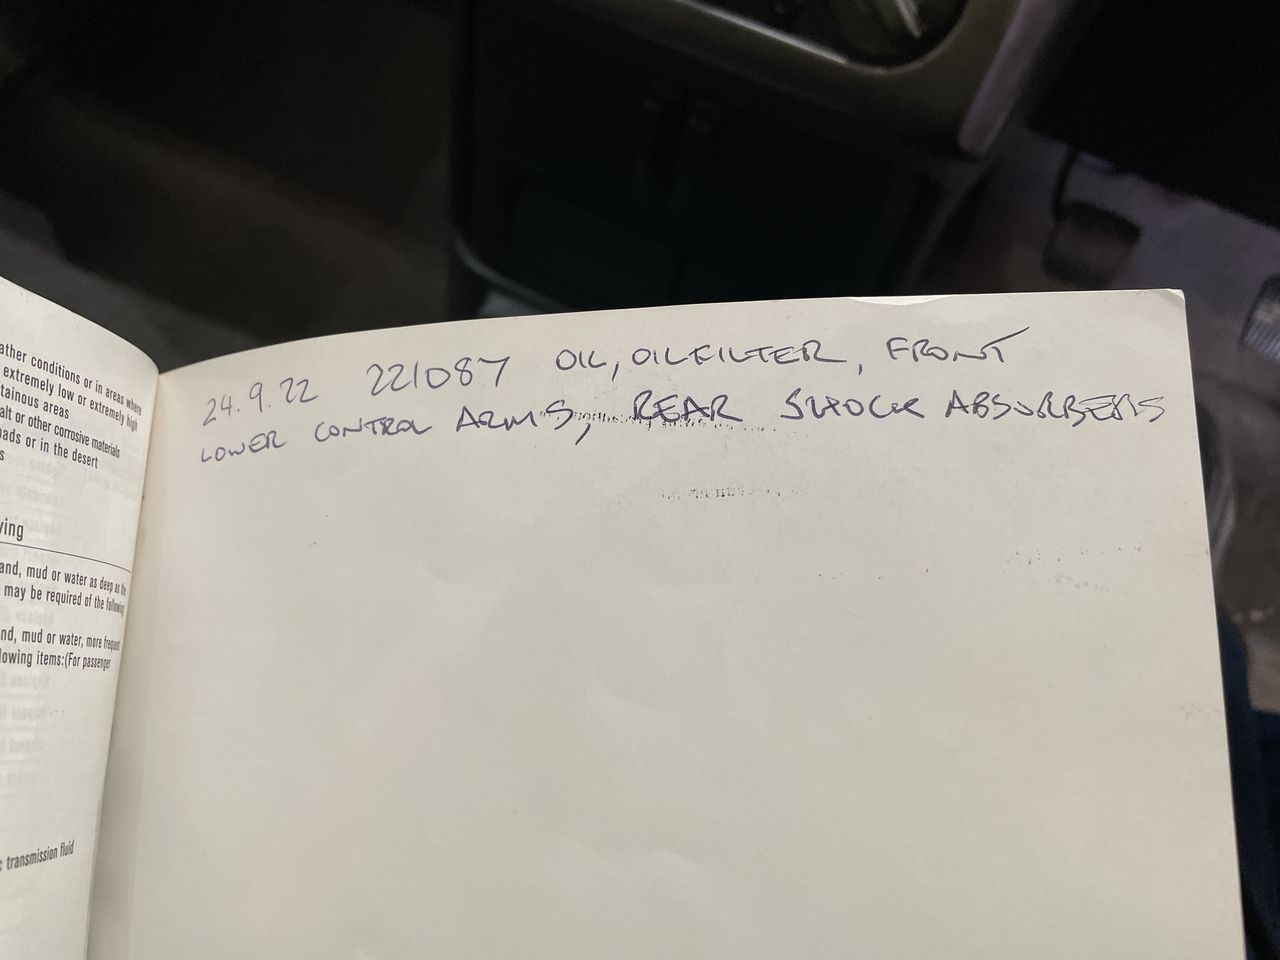 ather conditions or in areas where
extremely low or extremely high
tainous areas
alt or other corrosive materials
oads or in the desert
s
ving
and, mud or water as deep as the
may be required of the following
nd, mud or water, more frequent
lowing items:(For passenger
c transmission fluid
24.9.22 221087 OIL, OILFILTER, FRONT
LOWER CONTROL ARMS, REAR SHOCK ABSORBERS